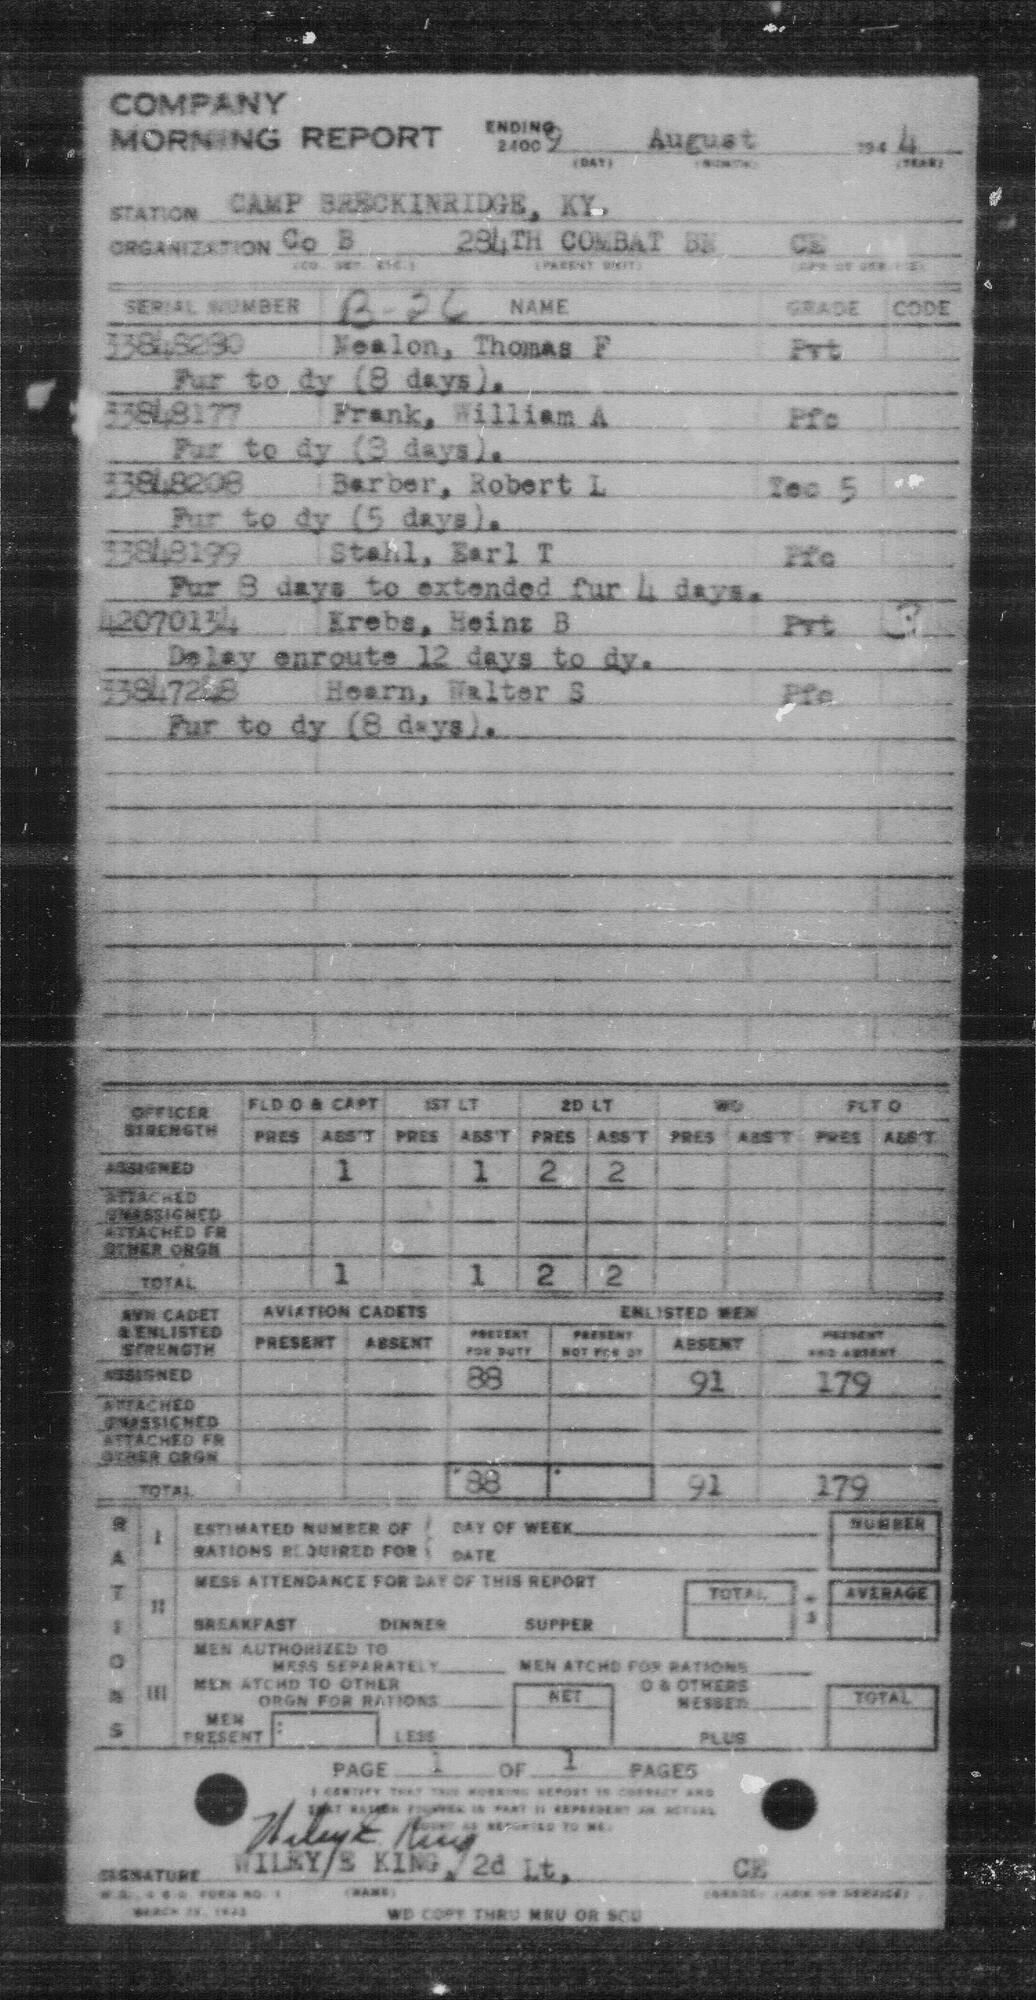 COMPANY
MORNING REPORT ENDING 2400 9 August 194 4
(DAY) (MONTH) (YEAR)
STATION CAMP BRECKINRIDGE, KY.
ORGANIZATION Co B 284TH COMBAT BN CE
(PARENT UNIT)
SERIAL NUMBER B-26 NAME GRADE CODE
Nealon, Thomas F Pvt
Fur to dy (8 days).
33848177 Frank, William A Pfc
Fur to dy (8 days).
33848208 Barber, Robert L Tec 5
Fur to dy (5 days).
33848199 Stahl, Earl T Pfc
Fur 8 days to extended fur 4 days.
42070134 Krebs, Heinz B Pvt
Delay enroute 12 days to dy.
Hearn, Walter S Pfc
Fur to dy (8 days).
OFFICER STRENGTH FLD O & CAPT 1ST LT 2D LT WO FLT O
PRES ABS'T PRES ABS'T PRES ABS'T PRES ABS'T PRES ABS'T
ASSIGNED 1 1 2 2
ATTACHED UNASSIGNED
ATTACHED FR OTHER ORGN
TOTAL 1 1 2 2
AVN CADET & ENLISTED STRENGTH AVIATION CADETS ENLISTED MEN
PRESENT ABSENT PRESENT FOR DUTY PRESENT NOT FOR DY ABSENT PRESENT AND ABSENT
ASSIGNED 88 91 179
ATTACHED UNASSIGNED
ATTACHED FR OTHER ORGN
TOTAL 88 91 179
RATIONS
I ESTIMATED NUMBER OF DAY OF WEEK NUMBER
RATIONS REQUIRED FOR DATE
II MESS ATTENDANCE FOR DAY OF THIS REPORT TOTAL ÷ 3 AVERAGE
BREAKFAST DINNER SUPPER
III MEN AUTHORIZED TO
MESS SEPARATELY MEN ATCHD FOR RATIONS
MEN ATCHD TO OTHER O & OTHERS
ORGN FOR RATIONS NET MESSED TOTAL
MEN PRESENT LESS PLUS
PAGE 1 OF 1 PAGES
I CERTIFY THAT THIS MORNING REPORT IS CORRECT AND
THAT RATION FIGURES IN PART II REPRESENT AN ACTUAL
COUNT AS REPORTED TO ME.
Wiley E. King
SIGNATURE WILEY E KING, 2d Lt, CE
(NAME) (GRADE) (ARM OR SERVICE)
W.D., A.G.O. FORM NO. 1
WD COPY THRU MRU OR SCU